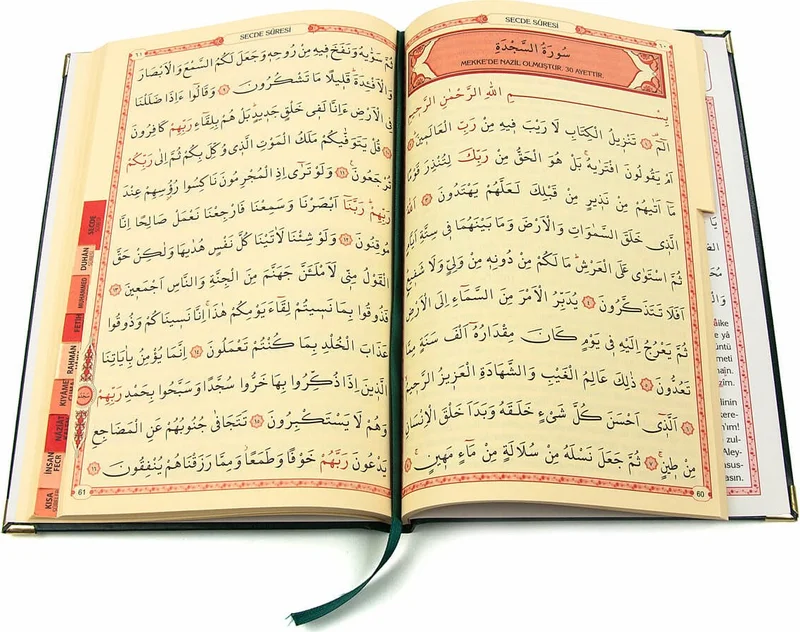 SECDE SÛRESİ
٦٠
سُورَةُ السَّجْدَةِ
MEKKE'DE NAZİL OLMUŞTUR. 30 AYETTİR.
بِسْمِ اللّٰهِ الرَّحْمٰنِ الرَّحِيمِ
الٓمٓ ۝١ تَنْزِيلُ الْكِتَابِ لَا رَيْبَ فِيهِ مِنْ رَبِّ الْعَالَمِينَۜ ۝٢
اَمْ يَقُولُونَ افْتَرٰيهُۚ بَلْ هُوَ الْحَقُّ مِنْ رَبِّكَ لِتُنْذِرَ قَوْمًا
مَٓا اَتٰيهُمْ مِنْ نَذِيرٍ مِنْ قَبْلِكَ لَعَلَّهُمْ يَهْتَدُونَ ۝٣ اَللّٰهُ
الَّذِي خَلَقَ السَّمٰوَاتِ وَالْاَرْضَ وَمَا بَيْنَهُمَا فِي سِتَّةِ اَيَّامٍ
ثُمَّ اسْتَوٰى عَلَى الْعَرْشِۜ مَا لَكُمْ مِنْ دُونِهِ مِنْ وَلِيٍّ وَلَا شَفِيعٍۜ
اَفَلَا تَتَذَكَّرُونَ ۝٤ يُدَبِّرُ الْاَمْرَ مِنَ السَّمَٓاءِ اِلَى الْاَرْضِ
ثُمَّ يَعْرُجُ اِلَيْهِ فِي يَوْمٍ كَانَ مِقْدَارُهُٓ اَلْفَ سَنَةٍ مِمَّا
تَعُدُّونَ ۝٥ ذٰلِكَ عَالِمُ الْغَيْبِ وَالشَّهَادَةِ الْعَزِيزُ الرَّحِيمُ ۝٦
اَلَّذِٓي اَحْسَنَ كُلَّ شَيْءٍ خَلَقَهُ وَبَدَاَ خَلْقَ الْاِنْسَانِ
مِنْ طِينٍ ۝٧ ثُمَّ جَعَلَ نَسْلَهُ مِنْ سُلَالَةٍ مِنْ مَٓاءٍ مَهِينٍ ۝٨
60
SECDE SÛRESİ
٦١
ثُمَّ سَوّٰيهُ وَنَفَخَ فِيهِ مِنْ رُوحِهِ وَجَعَلَ لَكُمُ السَّمْعَ وَالْاَبْصَارَ
وَالْاَفْـِٔدَةَۜ قَلِيلًا مَا تَشْكُرُونَ ۝٩ وَقَالُٓوا ءَاِذَا ضَلَلْنَا
فِي الْاَرْضِ ءَاِنَّا لَفِي خَلْقٍ جَدِيدٍۜ بَلْ هُمْ بِلِقَٓاءِ رَبِّهِمْ كَافِرُونَ
۝١٠ قُلْ يَتَوَفّٰيكُمْ مَلَكُ الْمَوْتِ الَّذِي وُكِّلَ بِكُمْ ثُمَّ اِلٰى رَبِّكُمْ
تُرْجَعُونَ ۝١١ وَلَوْ تَرٰٓى اِذِ الْمُجْرِمُونَ نَاكِسُوا رُؤُ۫سِهِمْ عِنْدَ
رَبِّهِمْۜ رَبَّنَٓا اَبْصَرْنَا وَسَمِعْنَا فَارْجِعْنَا نَعْمَلْ صَالِحًا اِنَّا
مُوقِنُونَ ۝١٢ وَلَوْ شِئْنَا لَاٰتَيْنَا كُلَّ نَفْسٍ هُدٰيهَا وَلٰكِنْ حَقَّ
الْقَوْلُ مِنِّي لَاَمْلَـَٔنَّ جَهَنَّمَ مِنَ الْجِنَّةِ وَالنَّاسِ اَجْمَعِينَ ۝١٣
فَذُوقُوا بِمَا نَسِيتُمْ لِقَٓاءَ يَوْمِكُمْ هٰذَاۚ اِنَّا نَسِينَاكُمْ وَذُوقُوا
عَذَابَ الْخُلْدِ بِمَا كُنْتُمْ تَعْمَلُونَ ۝١٤ اِنَّمَا يُؤْمِنُ بِاٰيَاتِنَا
الَّذِينَ اِذَا ذُكِّرُوا بِهَا خَرُّوا سُجَّدًا وَسَبَّحُوا بِحَمْدِ رَبِّهِمْ
وَهُمْ لَا يَسْتَكْبِرُونَ ۝١٥ تَتَجَافٰى جُنُوبُهُمْ عَنِ الْمَضَاجِعِ
يَدْعُونَ رَبَّهُمْ خَوْفًا وَطَمَعًاۘ وَمِمَّا رَزَقْنَاهُمْ يُنْفِقُونَ ۝١٦
61
SECDE
DUHÂN
MUHAMMED
FETİH
RAHMÂN
KIYÂME
NÂZİÂT
İNSAN
FECR
KISA
âike
ve yâ
üntü
meti
nain.
zim.
linin
kere-
n'ım!
zul-
Aley-
usus-
asın.